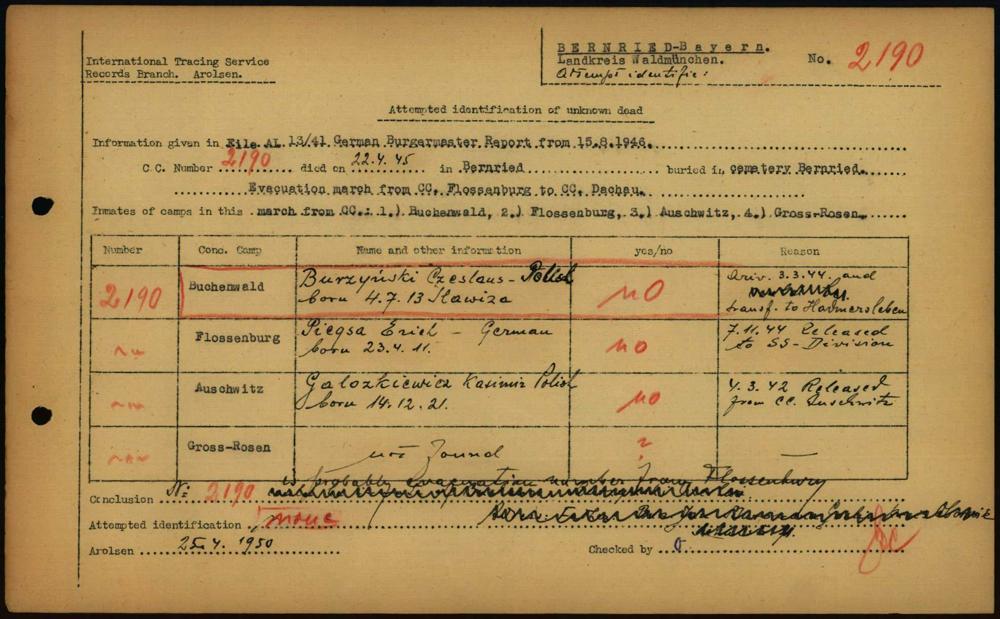 International Tracing Service
Records Branch. Arolsen.
BERNRIED-Bayern.
Landkreis Waldmünchen.
Attempt identific:
No. 2190
Attempted identification of unknown dead
Information given in File AL 13/41 German Burgermaster Report from 15.8.1946.
C.C. Number 2190 died on 22.4.45 in Bernried buried in cemetery Bernried.
Evacuation march from CC. Flossenburg to CC. Dachau.
Inmates of camps in this march from CC.: 1.) Buchenwald, 2.) Flossenburg, 3.) Auschwitz, 4.) Gross-Rosen.
Number Conc. Camp Name and other information yes/no Reason
2190 Buchenwald Burzyński Czeslaus - Polish born 4.7.13 Sławiza no Ariv. 3.3.44. and transf. to Hadmersleben
Flossenburg Piegsa Erich - German born 23.4.11. no 7.11.44 Released to SS-Division
Auschwitz Galozkiewicz Kasimir Polish born 14.12.21. no 4.3.42 Released from CC. Auschwitz
Gross-Rosen not found ? —
Conclusion Nr. 2190 is probably evacuation number from Flossenburg
Attempted identification none
Arolsen 25.4.1950 Checked by